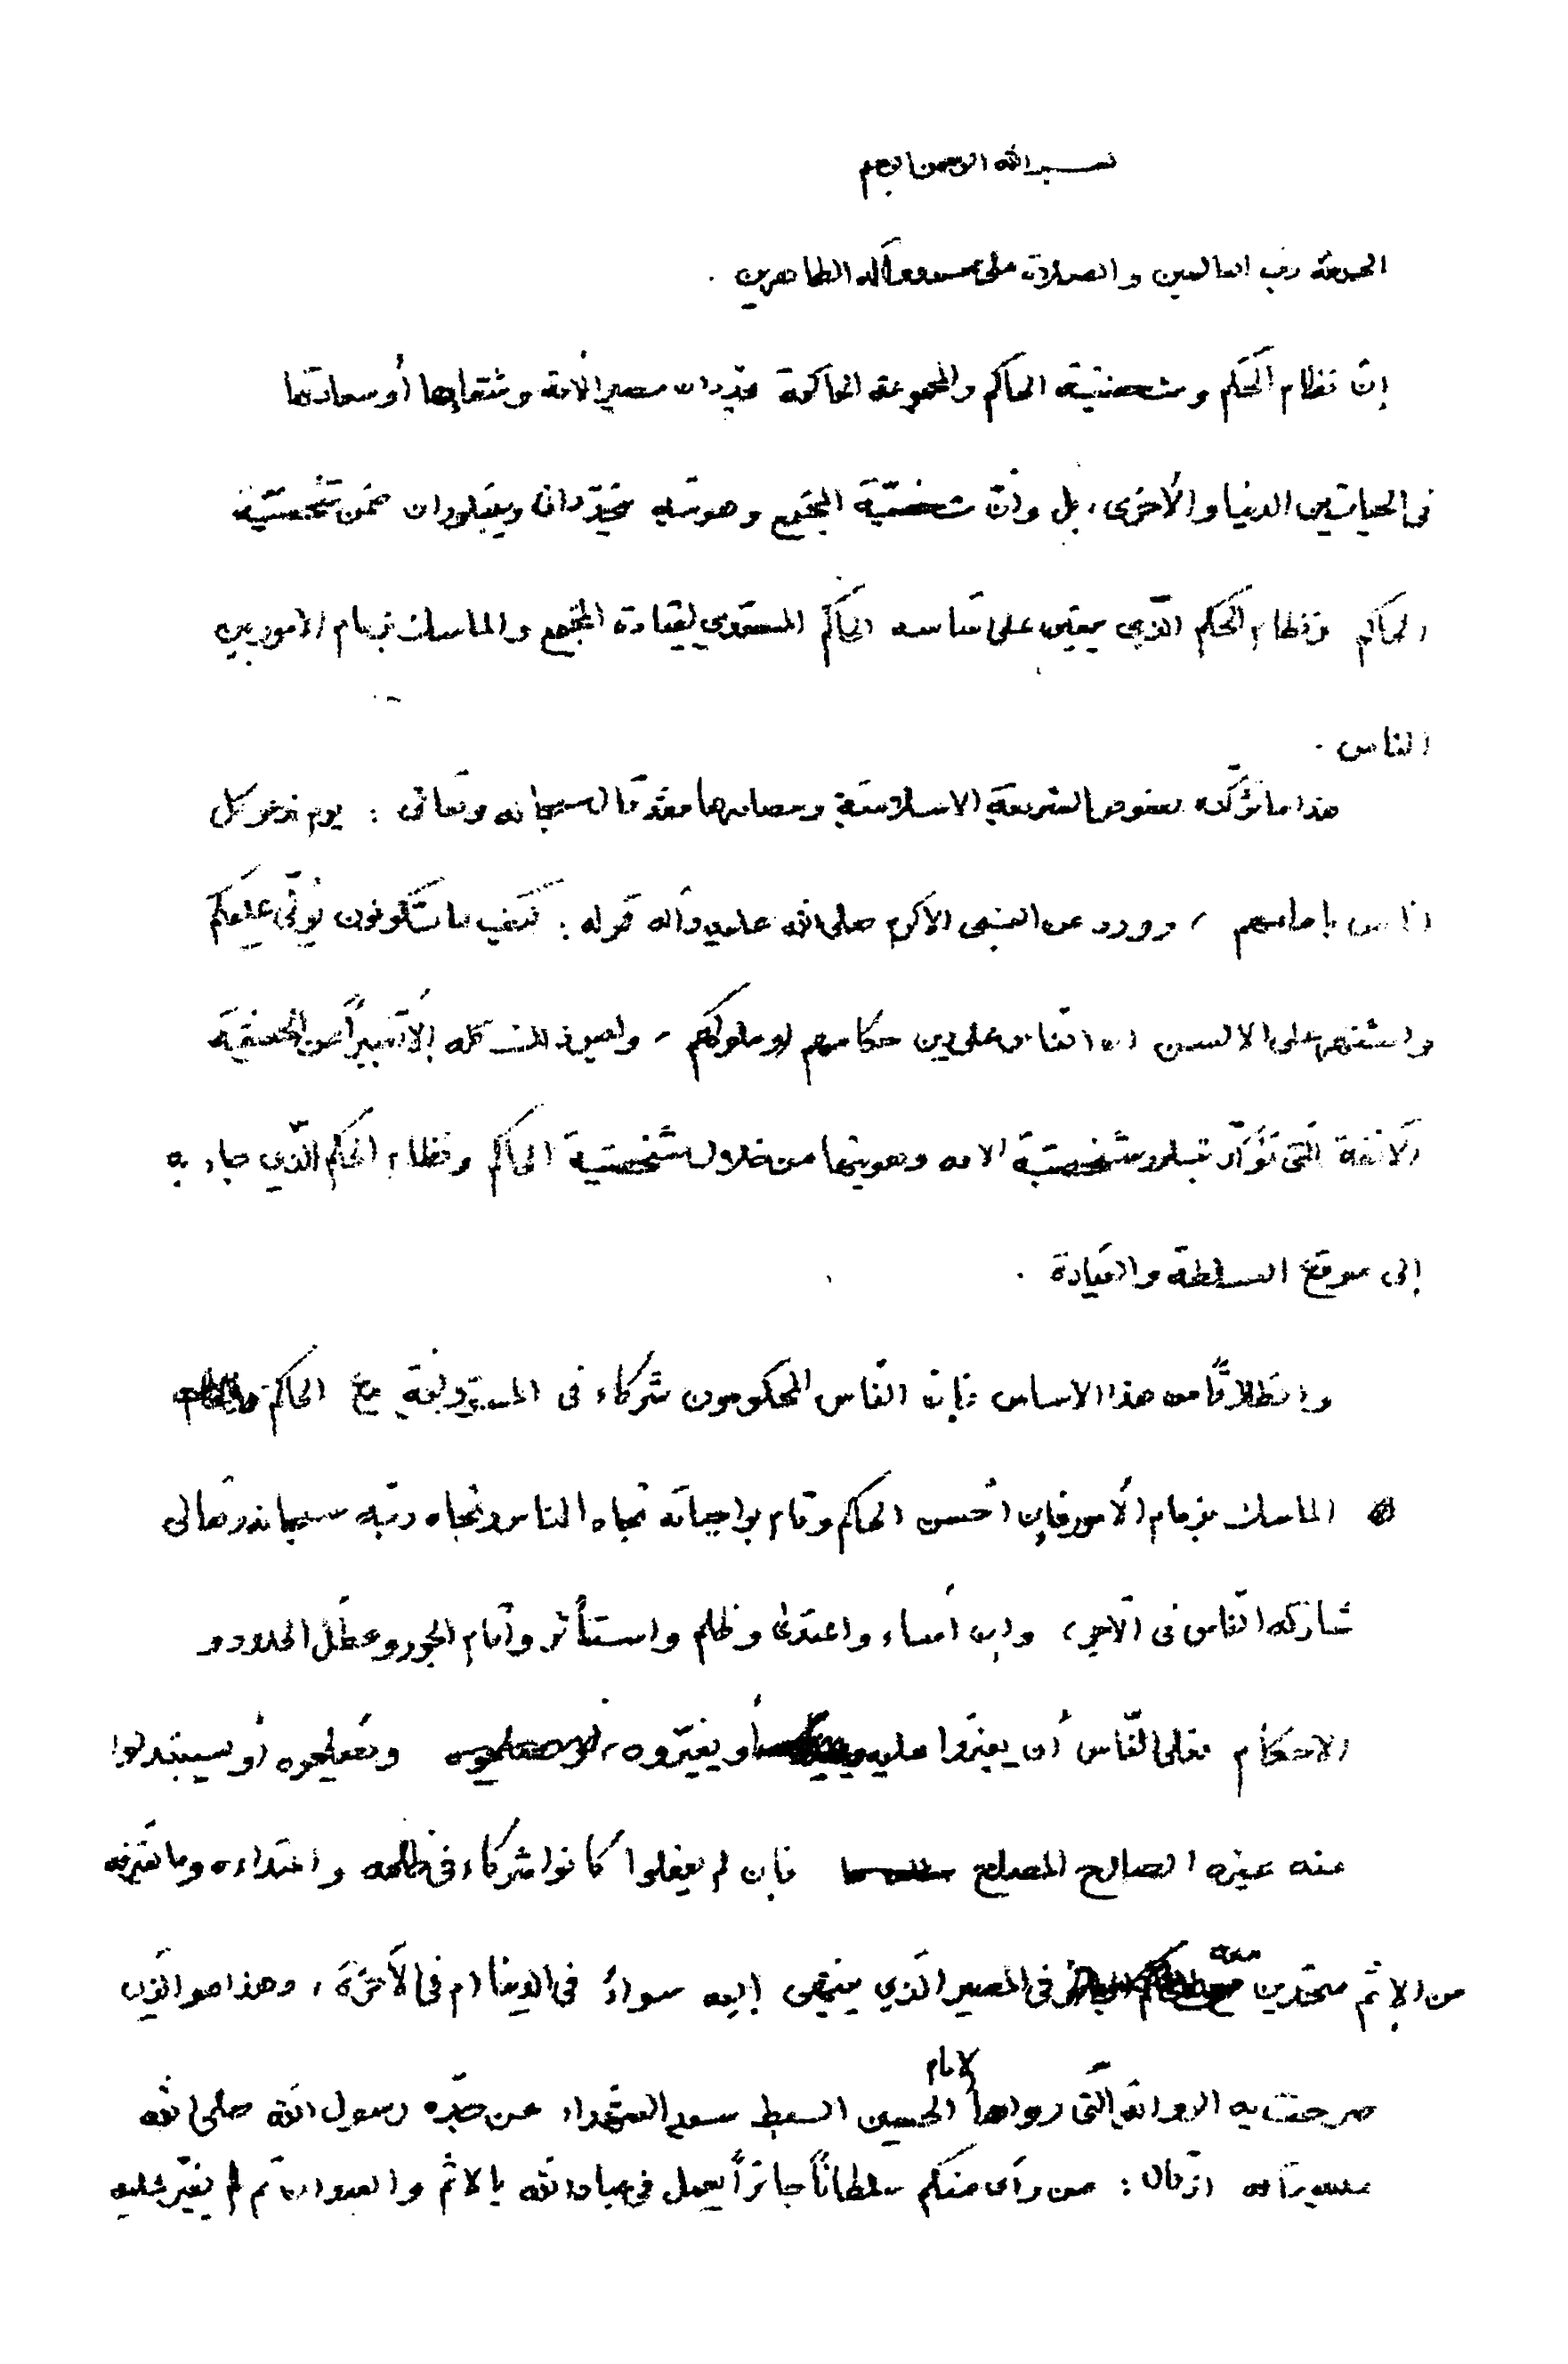 بسم الله الرحمن الرحيم
الحمد لله رب العالمين والصلاة على محمد وآله الطاهرين .
إنّ نظام الحكم وشخصيّة الحاكم والمجموعة الحاكمة تحدّدان مصير الأمة وشقاءها أو سعادتها
في الحياتين الدنيا والأخرى، بل وانّ شخصيّة المجتمع وهويته تتحدّدان ويتبلوران ضمن شخصيّة
الحاكم ونظام الحكم الّذي يتعيّن على أساسه الحاكم المتصدي لقيادة المجتمع والماسك بزمام الأمور بين
الناس .
هذا ما تؤكّده نصوص الشريعة الاسلاميّة ومصادرها فقد قال سبحانه وتعالى : يوم ندعو كل
اناس بامامهم ، وورد عن النبي الأكرم صلى الله عليه وآله قوله : كيف ما تكونون يُولّى عليكم
واشتهر على الالسن ان الناس على دين حكامهم او ملوكهم ، وليس ذلك كله إلا تعبيراً عن الحقيقة
الآنفة الّتي تؤكّد تبلور شخصيّة الامه وهويتها من خلال شخصيّة الحاكم ونظام الحكم الّذي جاء به
إلى موقع السلطة والقيادة .
وانطلاقاً من هذا الاساس فإن النّاس المحكومون شركاء في المسؤولية مع الحاكم
الماسك بزمام الأمور فإن أحسن الحاكم وقام بواجباته تجاه الناس وتجاه ربّه سبحانه وتعالى
شاركه النّاس في الأجر، وإن أساء واعتدى وظلم واستأثر وأقام الجور وعطّل الحدود و
الاحكام فعلى النّاس أن يغيّروا عليه أو يغيّروه، ويُصلحوه أو يستبدلوا
عنه غيره الصالح المصلح فإن لم يفعلوا كانوا شركاء في ظلمه واعتداءه وما يقترفه
من الإثم متحدين معه في المصير الّذي ينتهي إليه سواءً في الدينا ام في الآخرة، وهذا هو الّذي
صرحت به الرواية الّتي رواها الامام الحسين السبط سيد الشهداء عن جدّه رسول الله صلى الله
عليه وآله اذ قال : من رآى منكم سلطاناً جائراً يعمل في عباد الله بالاثم والعدوان ثم لم يغيّر عليه